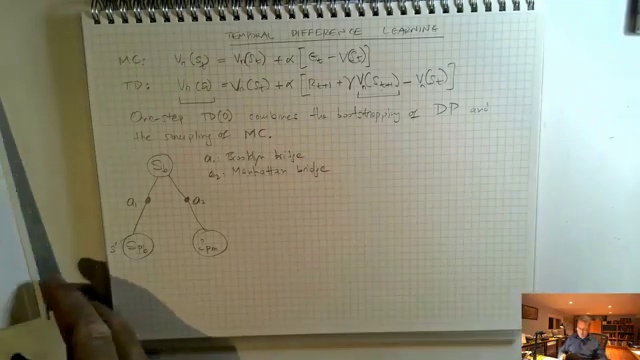 TEMPORAL DIFFERENCE LEARNING
MC: Vπ(St) = Vπ(St) + α [Gt − V(St)]
TD: Vπ(St) = Vπ(St) + α [Rt+1 + γ Vπ(St+1) − Vπ(St)]
One-step TD(0) combines the bootstrapping of DP and
the sampling of MC.
a1: Brooklyn bridge
a2: Manhattan bridge
Sb
a1
a2
s'